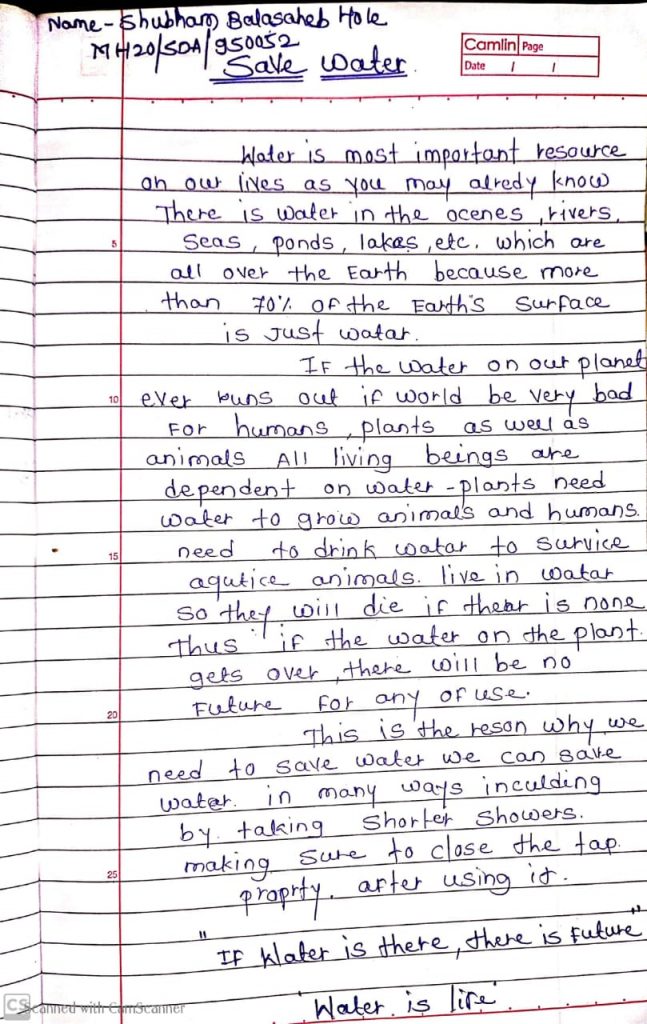 Name - Shubham Balasaheb Hole
MH20/SDA/950052
Camlin Page
Date / /
Save Water.
Water is most important resource
on our lives as you may alredy know
There is water in the ocenes, rivers,
5 seas, ponds, lakes, etc. which are
all over the Earth because more
than 70% of the Earth's surface
is Just watar.
If the water on our planet
10 ever runs out if world be very bad
For humans, plants as well as
animals All living beings are
dependent on water - plants need
water to grow animals and humans.
15 need to drink watar to survice
aqutice animals. live in watar
so they will die if thear is none
Thus if the water on the plant.
gets over, there will be no
20 Future for any of use.
This is the reson why we
need to save water we can save
water. in many ways inculding
by. taking shorter showers.
25 making sure to close the tap.
proprty. after using it.
"If Water is there, there is Future"
'Water. is life'
CS Scanned with CamScanner